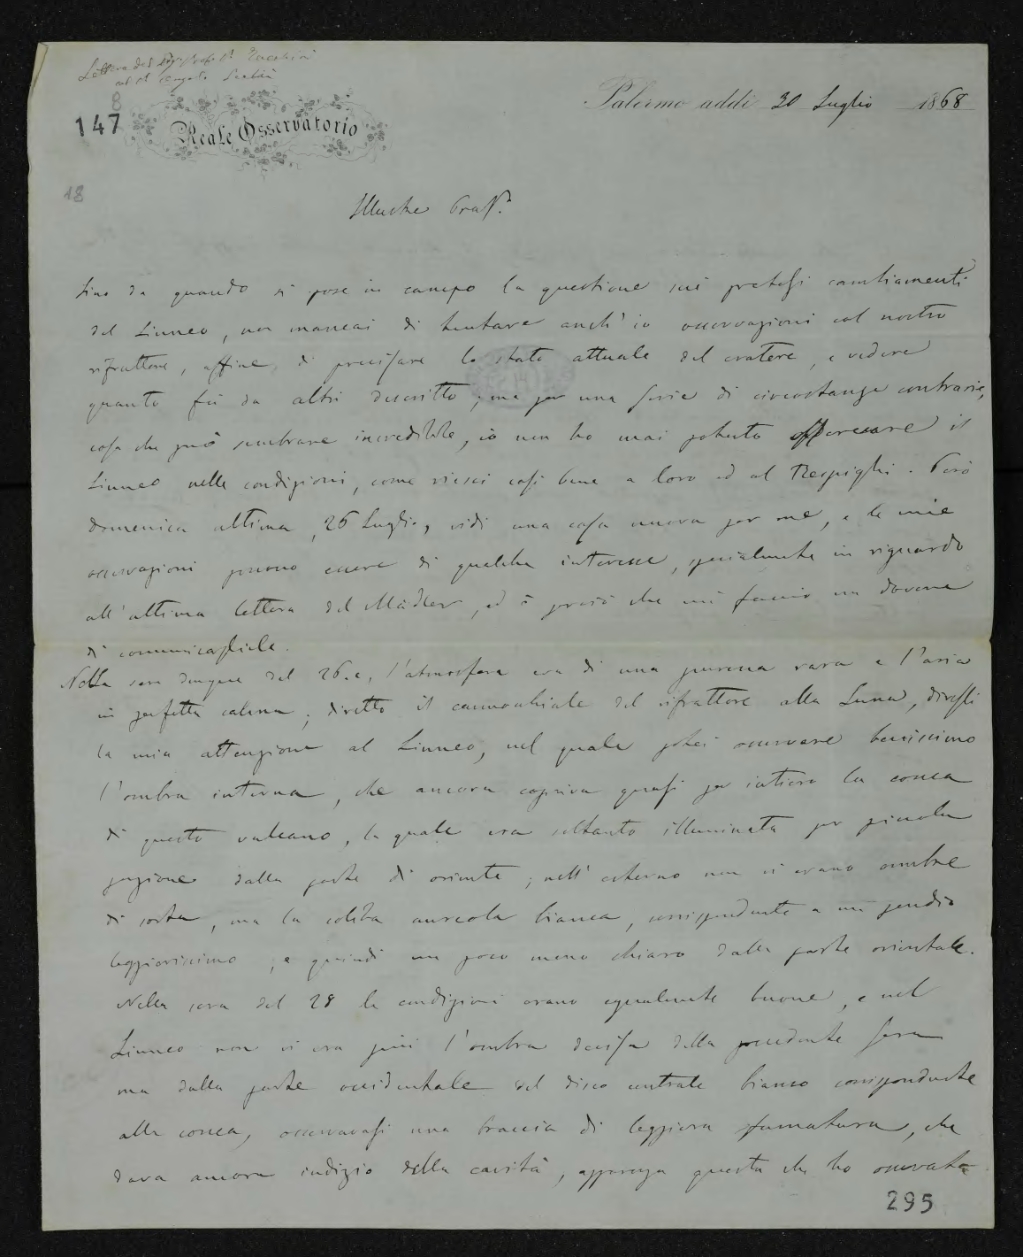 Lettera del Sig. Prof. Tacchini
al P. Angelo Secchi
8
147
Reale Osservatorio
Palermo addì 30 Luglio 1868
18
Illustre Prof.e
Fino da quando si pose in campo la questione sui pretesi cambiamenti
del Linneo, non mancai di tentare anch'io osservazioni col nostro
rifrattore, affine di precisare lo stato attuale del cratere, e vedere
quanto fu da altri descritto, ma per una serie di circostanze contrarie,
cosa che può sembrare incredibile, io non ho mai potuto osservare il
Linneo nelle condizioni, come riescì così bene a loro ed al Respighi. Però
domenica ultima, 26 Luglio, vidi una cosa nuova per me, e le mie
osservazioni possono essere di qualche interesse, specialmente in riguardo
all'ultima lettera del Mädler, ed è perciò che mi faccio un dovere
di comunicargliele.
Nella sera dunque del 26, l'atmosfera era di una purezza rara e l'aria
in perfetta calma; diretto il cannocchiale del rifrattore alla Luna, diressi
la mia attenzione al Linneo, nel quale potei osservare benissimo
l'ombra interna, che ancora copriva quasi per intiero la conca
di questo vulcano, la quale era soltanto illuminata per piccola
porzione dalla parte di oriente; nell'esterno non vi erano ombre
di sorta, ma la solita aureola bianca, corrispondente a un pendio
leggerissimo, e quindi un poco meno chiaro dalla parte orientale.
Nella sera del 28 le condizioni erano egualmente buone, e nel
Linneo non vi era più l'ombra decisa della precedente sera
ma dalla parte occidentale del disco centrale bianco corrispondente
alla conca, osservavasi una traccia di leggiera sfumatura, che
dava ancora indizio della cavità, apparenza questa che ho osservato
295